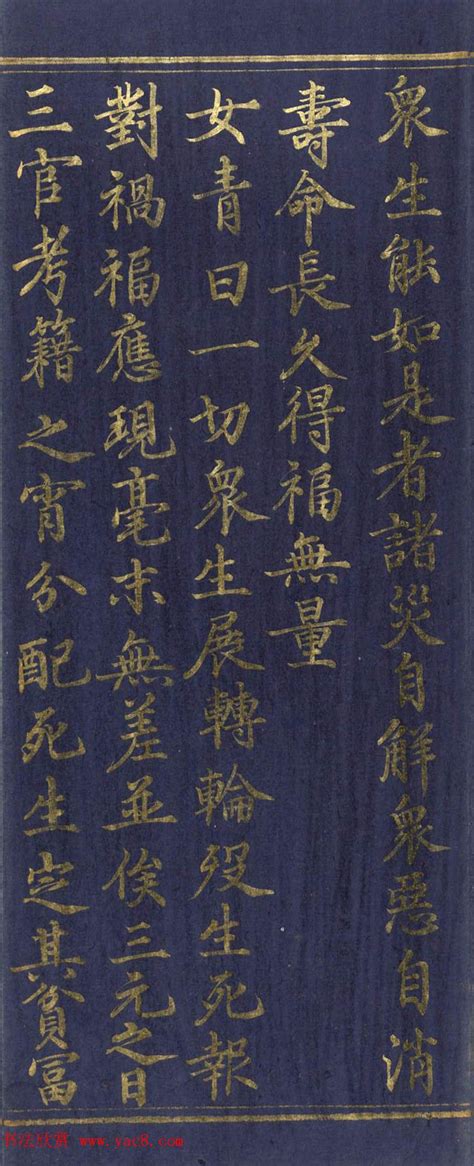 眾生能如是者諸災自解眾惡自消
壽命長久得福無量
女青曰一切眾生展轉輪歿生死報
對禍福應現毫末無差並俟三元之日
三官考籍之宵分配死生定其貧富
书法欣赏 www.yac8.com